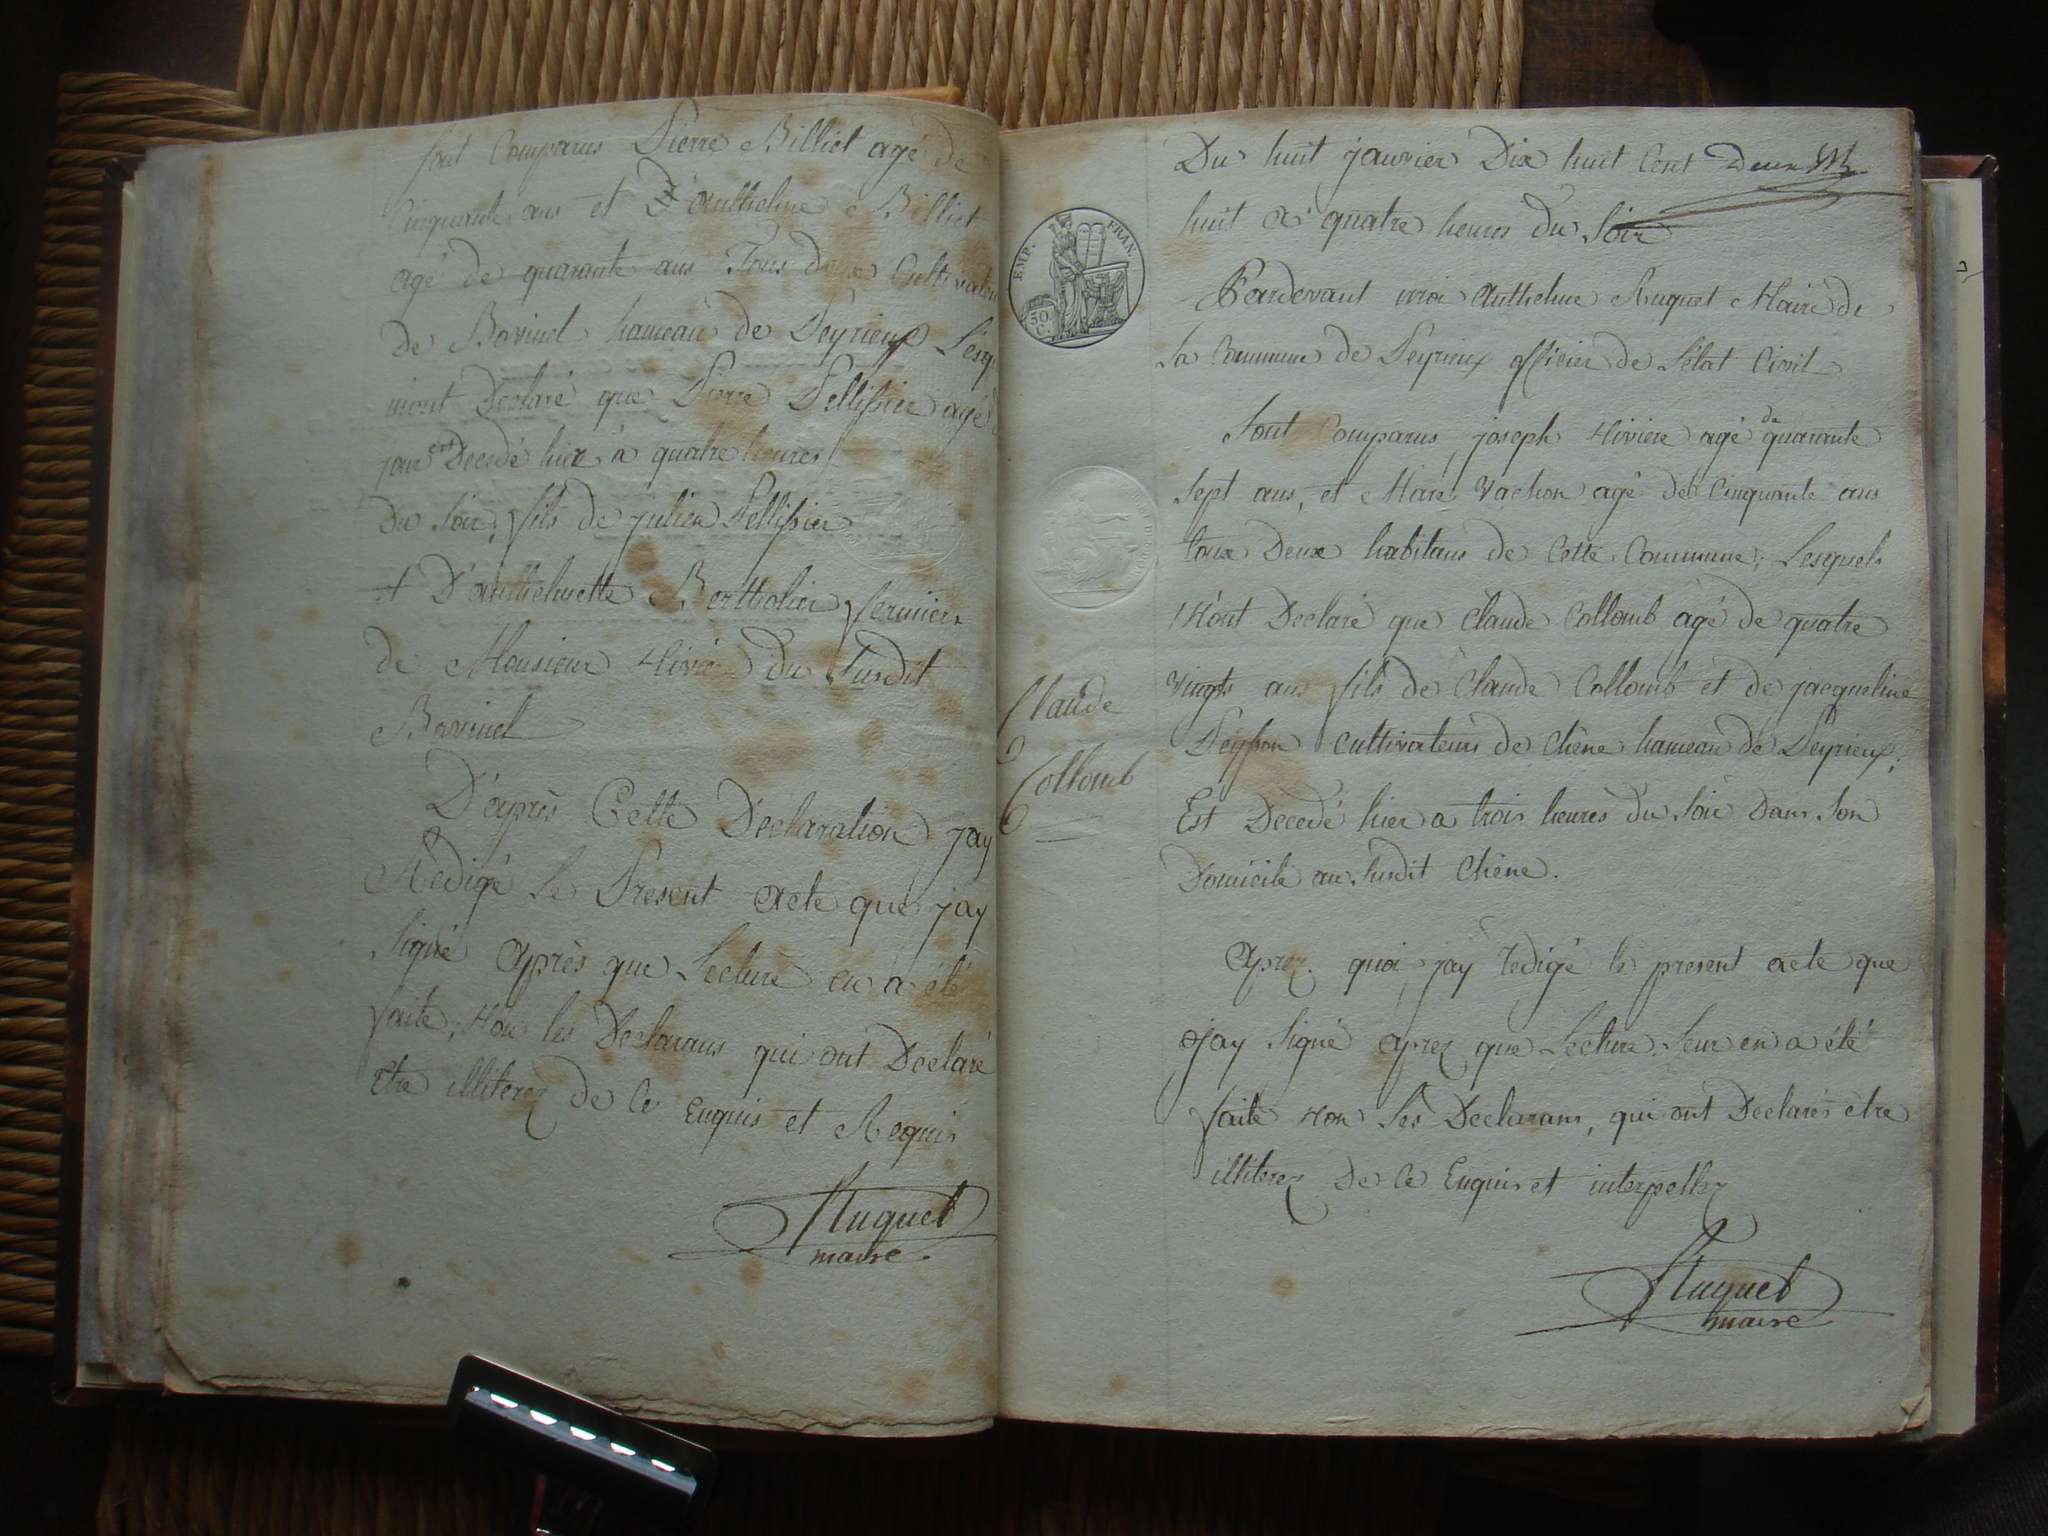 sont Comparus Pierre Billiet agé de
Cinquante ans et D'anthelme Billiet
agé de quarante ans Tous deux Cultivateu
de Bovinel hameau de Peyrieux Lesqu
mont Declaré que Pierre Pellissier agé
jour est Decedé hier à quatre heures
du soir, fils de julien Pellissier
et D'anthelmette Bertholier fermier
de Monsieur du susdit
Bovinel
D'après Cette Declaration jay
Redigé le Present acte que jay
signé après que Lecture en a été
faite, Non les Declarans qui ont Declaré
etre illiterez de ce Enquis et Requis
Huguet
maire.
Du huit janvier Dix huit Cent
huit a quatre heures du soir
EMP. FRAN.
50
C.
Pardevant moi Anthelme Huguet Maire de
La Commune de Peyrieux officier de L'état Civil
Sont Comparus, joseph agé de quarante
sept ans, et Marc Vachon agé de Cinquante ans
tous Deux habitans de Cette Commune; Lesquels
M'ont Declaré que Claude Collomb agé de quatre
vingts ans fils de Claude Collomb et de jacqueline
Peysson cultivateurs de Chêne hameau de Peyrieux,
Est Decedé hier a trois heures du Soir Dans Son
Domicile au susdit Chêne.
Claude
Collomb
Aprez quoi, jay redigé le present acte que
jay signé aprez que Lecture Leur en a été
faite Non Les Declarans, qui ont Declarés être
illiterez De Ce Enquis et interpellez
Huguet
maire